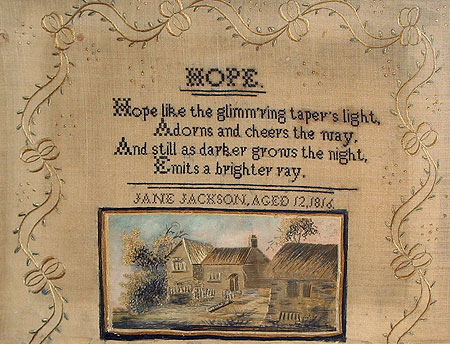 HOPE.
Hope like the glimm'ring taper's light,
Adorns and cheers the way,
And still as darker grows the night,
Emits a brighter ray.
JANE JACKSON, AGED 12, 1816.